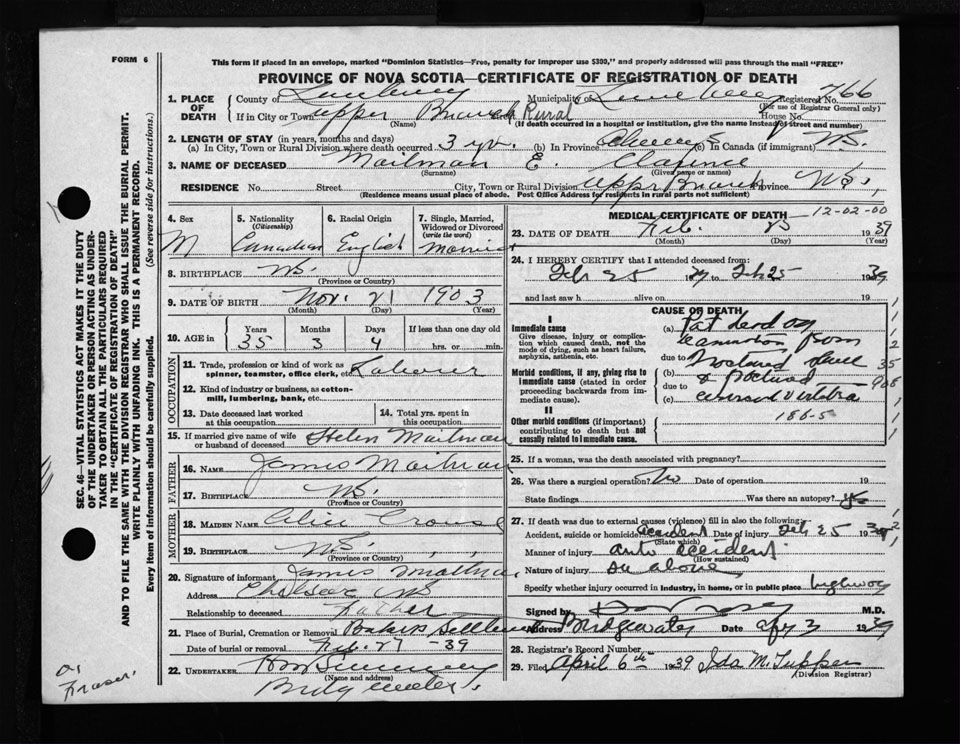 FORM 6
This form if placed in an envelope, marked "Dominion Statistics—Free, penalty for improper use $300," and properly addressed will pass through the mail "FREE"
PROVINCE OF NOVA SCOTIA—CERTIFICATE OF REGISTRATION OF DEATH
1. PLACE OF DEATH County of Lunenburg Municipality of Lunenburg Registered No. 766
(For use of Registrar General only)
If in City or Town Upper Branch Rural House No.
(Name) (If death occurred in a hospital or institution, give the name instead of street and number)
2. LENGTH OF STAY (in years, months and days)
(a) In City, Town or Rural Division where death occurred 3 yr. (b) In Province Always (c) In Canada (if immigrant) N.S.
3. NAME OF DECEASED Mailman E. Clarence
(Surname) (Given name or names)
RESIDENCE No. Street City, Town or Rural Division Uppr Branch Province N.S.
(Residence means usual place of abode. Post Office Address for residents in rural parts not sufficient)
4. Sex M
5. Nationality (Citizenship) Canadian
6. Racial Origin English
7. Single, Married, Widowed or Divorced (write the word) Married
8. BIRTHPLACE N.S.
(Province or Country)
9. DATE OF BIRTH Nov. 21 1903
(Month) (Day) (Year)
10. AGE in Years 35 Months 3 Days 4 If less than one day old hrs. or min.
OCCUPATION
11. Trade, profession or kind of work as spinner, teamster, office clerk, etc. Laborer
12. Kind of industry or business, as cotton-mill, lumbering, bank, etc.
13. Date deceased last worked at this occupation
14. Total yrs. spent in this occupation
15. If married give name of wife or husband of deceased Helen Mailman
FATHER
16. NAME James Mailman
17. BIRTHPLACE N.S.
(Province or Country)
MOTHER
18. MAIDEN NAME Alice Crouse
19. BIRTHPLACE N.S.
(Province or Country)
20. Signature of informant James Mailman
Address Chelsea N.S
Relationship to deceased Father
21. Place of Burial, Cremation or Removal Bakers Settlement
Date of burial or removal Feb. 27 -39
22. UNDERTAKER
(Name and address)
Bridgewater
MEDICAL CERTIFICATE OF DEATH 12-02-00
23. DATE OF DEATH Feb. 25 1939
(Month) (Day) (Year)
24. I HEREBY CERTIFY that I attended deceased from:
Feb 25 1939 to Feb 25 1939
and last saw h alive on 19
CAUSE OF DEATH
I
Immediate cause
Give disease, injury or complication which caused death, not the mode of dying, such as heart failure, asphyxia, asthenia, etc.
(a)
from
due to
Morbid conditions, if any, giving rise to immediate cause (stated in order proceeding backwards from immediate cause).
(b) Fractured skull
due to & fractured
(c) cervical vertebra
II
Other morbid conditions (if important) contributing to death but not causally related to immediate cause.
186-5
25. If a woman, was the death associated with pregnancy?
26. Was there a surgical operation? No Date of operation 19
State findings Was there an autopsy?
27. If death was due to external causes (violence) fill in also the following:
Accident, suicide or homicide accident Date of injury Feb 25 1939
(State which)
Manner of injury auto accident
(How sustained)
Nature of injury as above
Specify whether injury occurred in industry, in home, or in public place highway
Signed by M.D.
Address Bridgewater Date Apr 3 1939
28. Registrar's Record Number
29. Filed April 6th 1939 Ida M. Tupper
(Division Registrar)
SEC. 46—VITAL STATISTICS ACT MAKES IT THE DUTY OF THE UNDERTAKER OR PERSON ACTING AS UNDERTAKER TO OBTAIN ALL THE PARTICULARS REQUIRED IN THE "CERTIFICATE OF REGISTRATION OF DEATH" AND TO FILE THE SAME WITH THE DIVISION REGISTRAR WHO SHALL ISSUE THE BURIAL PERMIT.
WRITE PLAINLY WITH UNFADING INK. THIS IS A PERMANENT RECORD.
Every item of information should be carefully supplied. (See reverse side for instructions.)
Fraser.